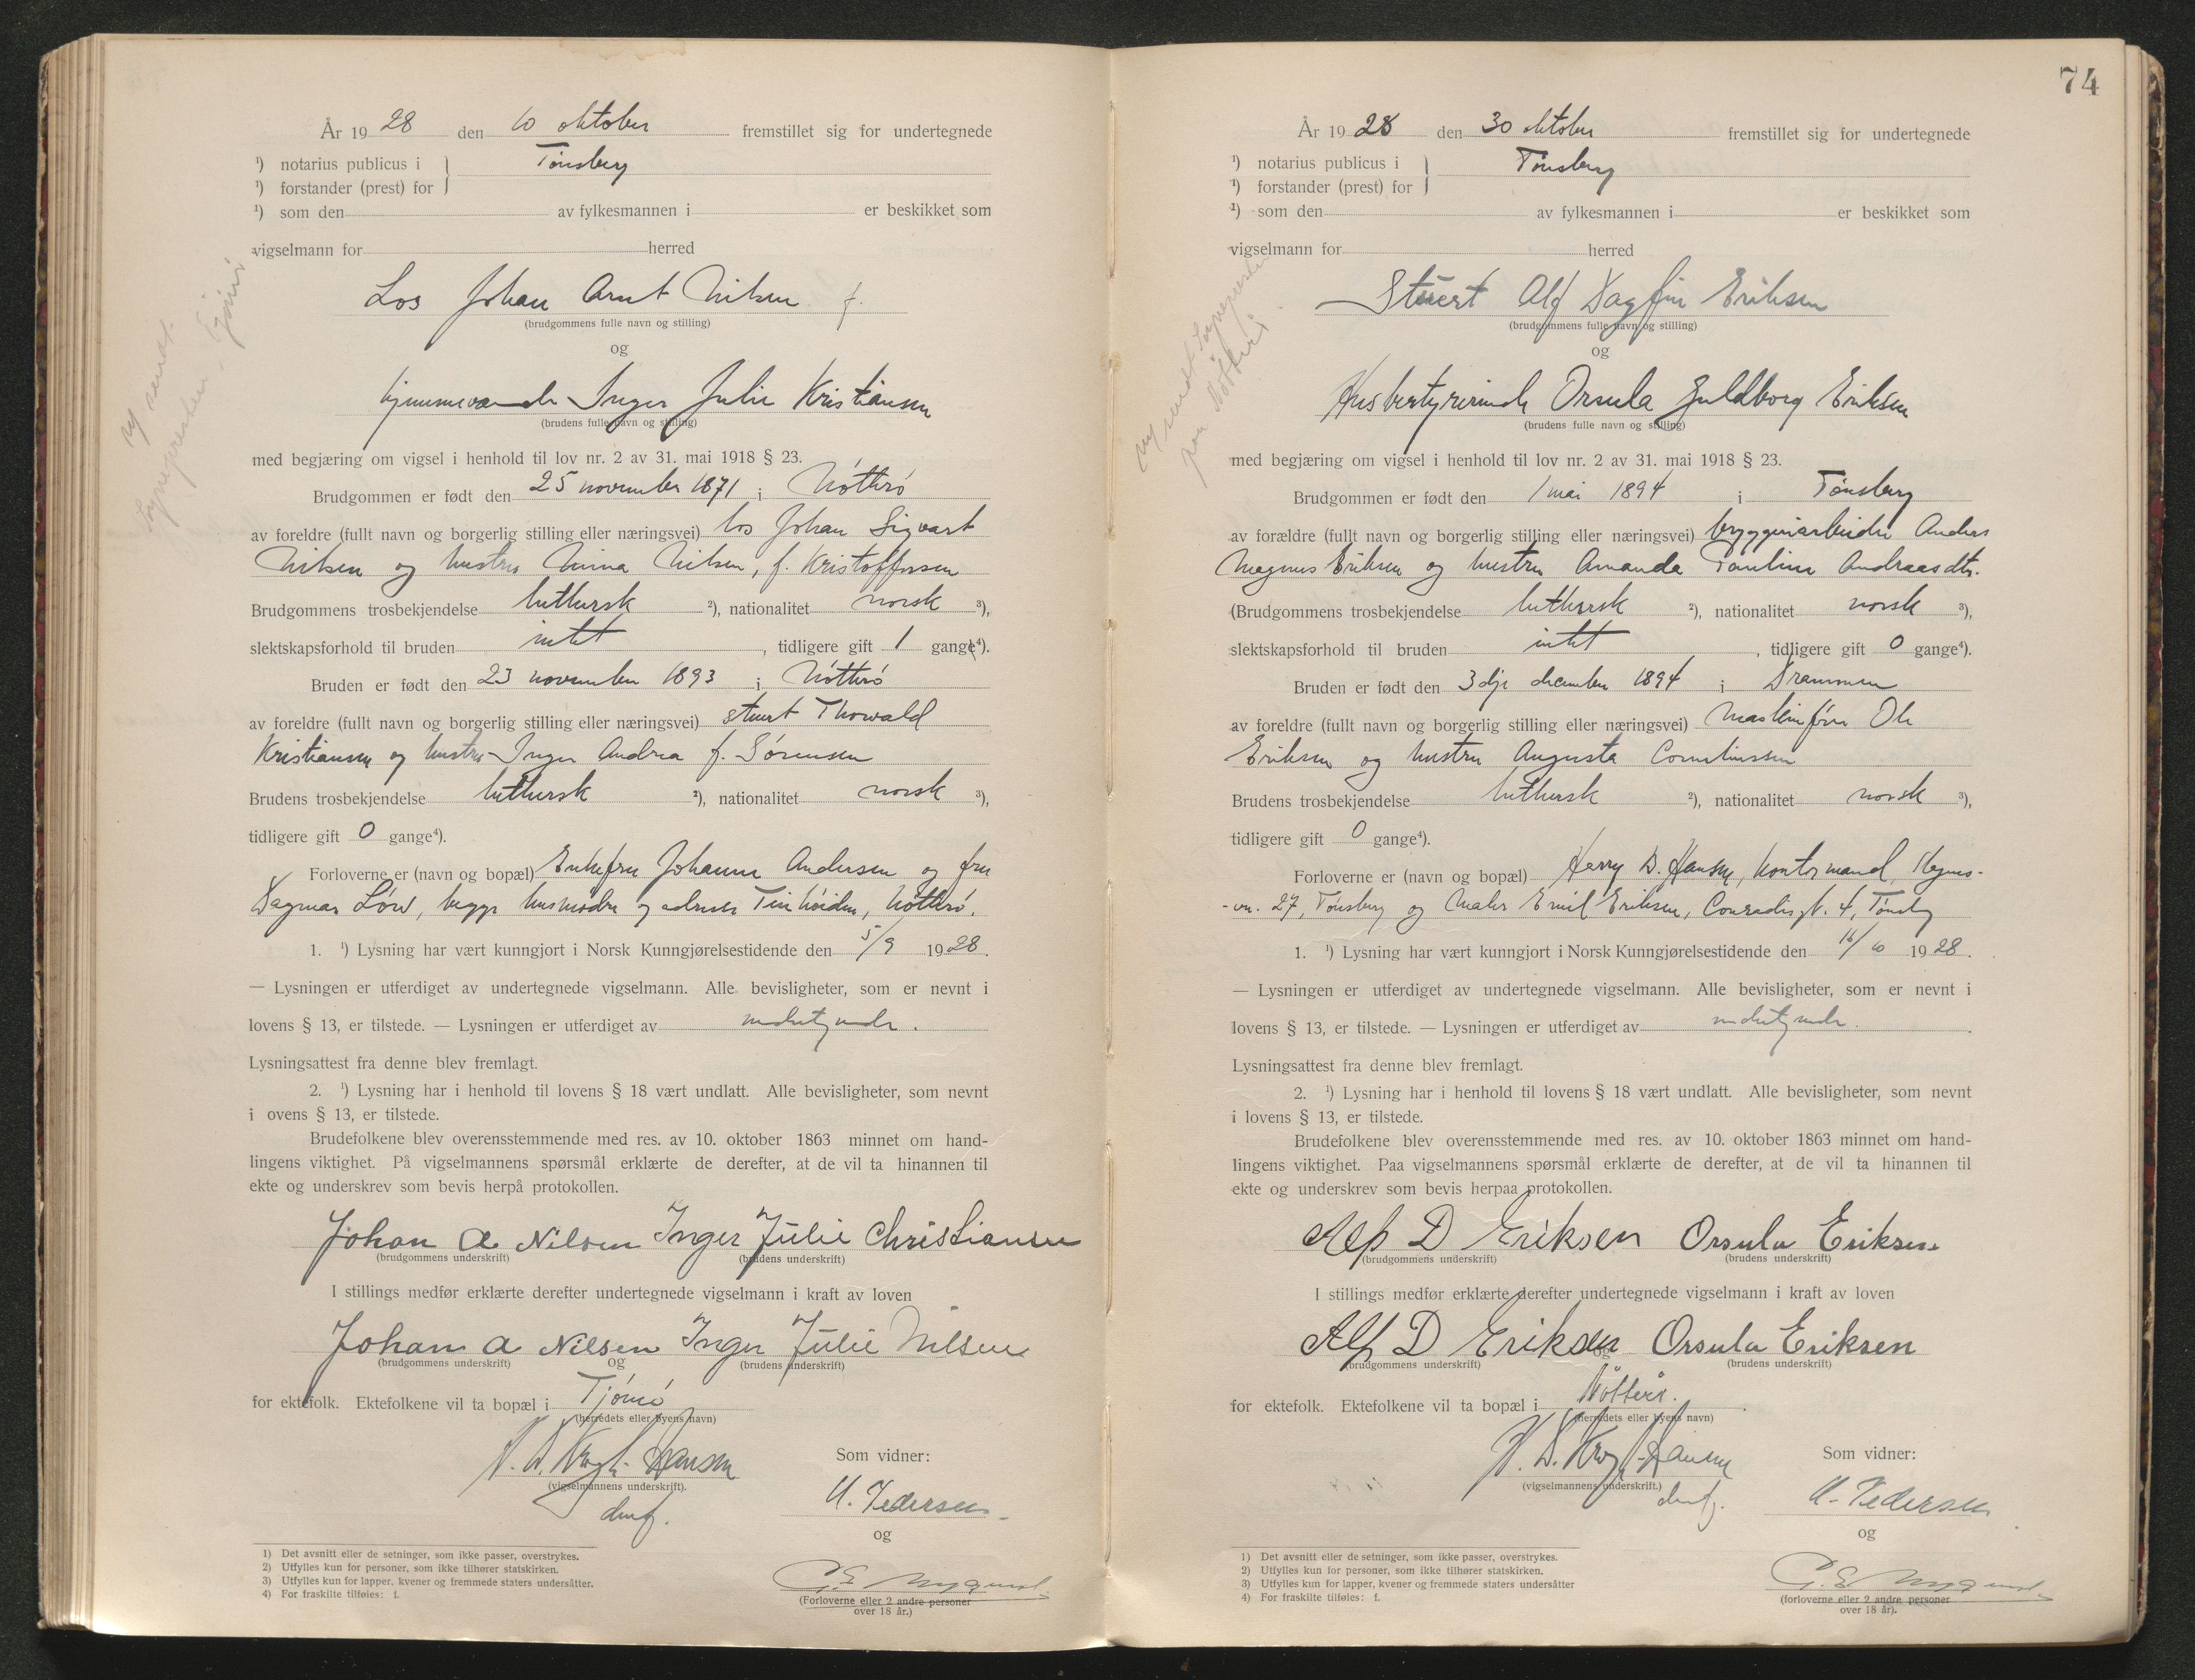 År 1928 den 10 oktober fremstillet sig for undertegnede
¹) notarius publicus i } Tønsberg
¹) forstander (prest) for
¹) som den av fylkesmannen i er beskikket som
vigselmann for herred
Los Johan Arnt Nilsen f.
(brudgommens fulle navn og stilling)
og
hjemmeværende Inger Julie Kristiansen
(brudens fulle navn og stilling)
med begjæring om vigsel i henhold til lov nr. 2 av 31. mai 1918 § 23.
Brudgommen er født den 25 november 1871 i Nötterö
av foreldre (fullt navn og borgerlig stilling eller næringsvei) los Johan Sigvart
Nilsen og hustru Mina Nilsen, f. Kristoffersen
Brudgommens trosbekjendelse luthersk ²), nationalitet norsk ³),
slektskapsforhold til bruden intet , tidligere gift 1 gange⁴).
Bruden er født den 23 november 1893 i Nötterö
av foreldre (fullt navn og borgerlig stilling eller næringsvei) stuert Thorvald
Kristiansen og hustru Inger Andrea f. Sörensen
Brudens trosbekjendelse luthersk ²), nationalitet norsk ³),
tidligere gift 0 gange⁴).
Forloverne er (navn og bopæl) Enkefru Johanne Andersen og fru
Dagmar Löw, begge husmødre og adresse Teinhöiden, Nötterö.
1. ¹) Lysning har vært kunngjort i Norsk Kunngjørelsestidende den 5/9 1928.
— Lysningen er utferdiget av undertegnede vigselmann. Alle bevisligheter, som er nevnt i
lovens § 13, er tilstede. — Lysningen er utferdiget av undertegnede.
Lysningsattest fra denne blev fremlagt.
2. ¹) Lysning har i henhold til lovens § 18 vært undlatt. Alle bevisligheter, som nevnt
i ovens § 13, er tilstede.
Brudefolkene blev overensstemmende med res. av 10. oktober 1863 minnet om hand-
lingens viktighet. På vigselmannens spørsmål erklærte de derefter, at de vil ta hinannen til
ekte og underskrev som bevis herpå protokollen.
Johan A Nilsen Inger Julie Christiansen
(brudgommens underskrift) (brudens underskrift)
I stillings medfør erklærte derefter undertegnede vigselmann i kraft av loven
Johan A Nilsen Inger Julie Nilsen
(brudgommens underskrift) og (brudens underskrift)
for ektefolk. Ektefolkene vil ta bopæl i Tjömö
(herredets eller byens navn)
H. D. Krogh-Hansen
(vigselmannens underskrift).
Som vidner:
U. Pedersen
og
(Forloverne eller 2 andre personer
over 18 år.)
1) Det avsnitt eller de setninger, som ikke passer, overstrykes.
2) Utfylles kun for personer, som ikke tilhører statskirken.
3) Utfylles kun for lapper, kvener og fremmede staters undersåtter.
4) For fraskilte tilføies: f.
sendt
Sognepresten, Tjömö
74
År 1928 den 30 oktober fremstillet sig for undertegnede
¹) notarius publicus i } Tønsberg
¹) forstander (prest) for
¹) som den av fylkesmannen i er beskikket som
vigselmann for herred
Stuert Alf Dagfin Eriksen
(brudgommens fulle navn og stilling)
og
Husbestyrerinde Orsula Guldborg Eriksen
(brudens fulle navn og stilling)
med begjæring om vigsel i henhold til lov nr. 2 av 31. mai 1918 § 23.
Brudgommen er født den 1 mai 1894 i Tønsberg
av forældre (fullt navn og borgerlig stilling eller næringsvei) bryggeriarbeider Anders
Magnus Eriksen og hustru Amanda Pauline Andreasdtr.
(Brudgommens trosbekjendelse luthersk ²), nationalitet norsk ³),
slektskapsforhold til bruden intet , tidligere gift 0 gange⁴).
Bruden er født den 3dje december 1894 i Drammen
av foreldre (fullt navn og borgerlig stilling eller næringsvei) Maskinfører Ole
Eriksen og hustru Augusta Corneliussen
Brudens trosbekjendelse luthersk ²), nationalitet norsk ³),
tidligere gift 0 gange⁴).
Forloverne er (navn og bopæl) Herry D. Hansen, kontormand,
27, Tønsberg og Maler Emil Eriksen, Conradis gt. 4, Tønsberg
1. ¹) Lysning har vært kunngjort i Norsk Kunngjørelsestidende den 16/10 1928.
— Lysningen er utferdiget av undertegnede vigselmann. Alle bevisligheter, som er nevnt i
lovens § 13, er tilstede. — Lysningen er utferdiget av undertegnede.
Lysningsattest fra denne blev fremlagt.
2. ¹) Lysning har i henhold til lovens § 18 vært undlatt. Alle bevisligheter, som nevnt
i lovens § 13, er tilstede.
Brudefolkene blev overensstemmende med res. av 10. oktober 1863 minnet om hand-
lingens viktighet. Paa vigselmannens spørsmål erklærte de derefter, at de vil ta hinannen til
ekte og underskrev som bevis herpaa protokollen.
Alf D Eriksen Orsula Eriksen
(brudgommens underskrift) (brudens underskrift)
I stillings medfør erklærte derefter undertegnede vigselmann i kraft av loven
Alf D Eriksen Orsula Eriksen
(brudgommens underskrift) og (brudens underskrift)
for ektefolk. Ektefolkene vil ta bopæl i Nötterö.
(herredets eller byens navn)
H. D. Krogh-Hansen
(vigselmannens underskrift.)
Som vidner:
U. Pedersen
og
(forloverne eller 2 andre personer
over 18 år).
1) Det avsnitt eller de setninger, som ikke passer, overstrykes.
2) Utfylles kun for personer, som ikke tilhører statskirken.
3) Utfylles kun for lapper, kvener og fremmede staters undersåtter
4) For fraskilte tilføies: f.
sendt Sognepresten
Nötterö